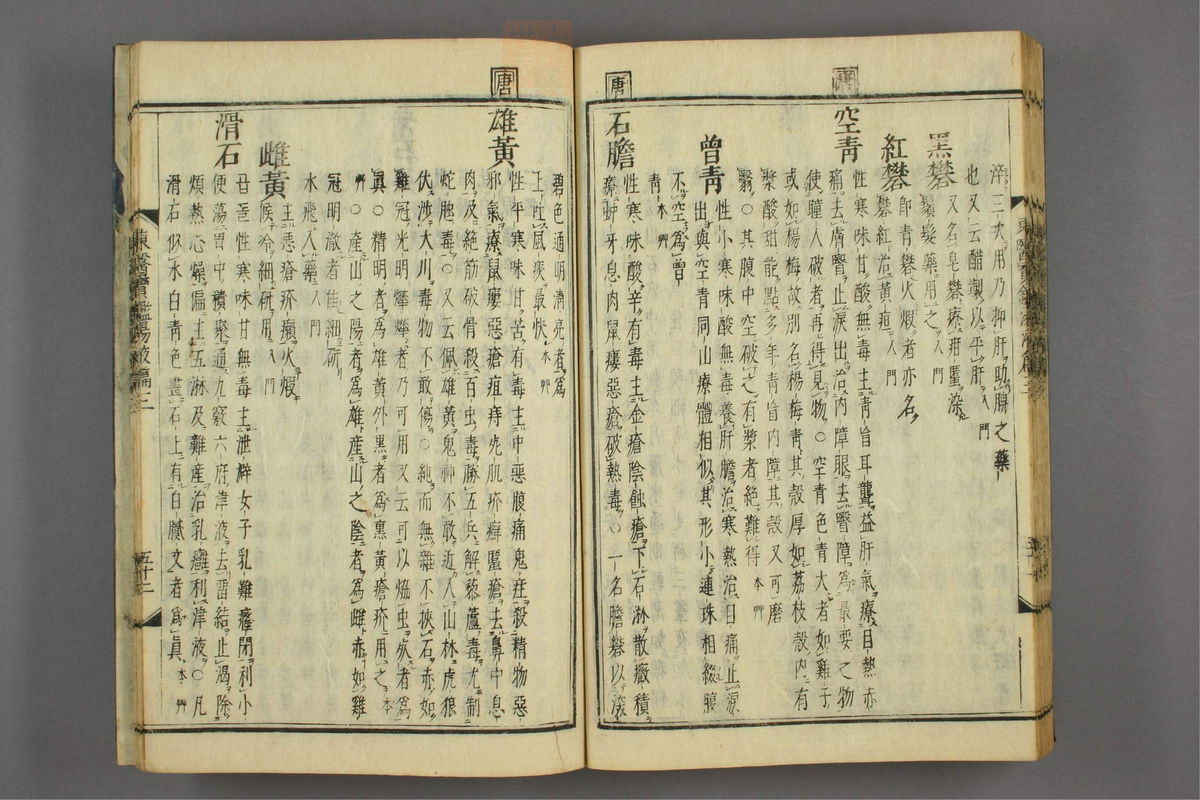 淬三次用乃抑肝助脾之藥
也又云醋製以平肝 入門
黑礬 又名皂礬療疳䘌染
鬚髮藥用之 入門
紅礬 卽青礬火煆者亦名
礬紅治黃疸 入門
唐
空青
性寒味甘酸無毒主青盲耳聾益肝氣療目熱赤
痛去膚瞖止淚出治內障眼去瞖障爲最要之物
使瞳人破者再得見物○空青色青大者如雞子
或如楊梅故別名楊梅青其殼厚如荔枝殼內有
漿酸甜能點多年青盲內障其殼又可磨
瞖○其腹中空破之有漿者絕難得 本艸
曾青 性小寒味酸無毒養肝膽治寒熱治目痛止淚
出與空青同山療體相似其形小連珠相綴腹
不空爲曾
青 本艸
唐
石膽
性寒味酸辛有毒主金瘡陰蝕瘡下石淋散癥積
療蚛牙息肉鼠瘻惡瘡破熱毒○一名膽礬以深
碧色通明淸亮者爲
上吐風痰最快 本艸
唐
雄黃
性平寒味甘苦有毒主中惡腹痛鬼疰殺精物惡
邪氣療鼠瘻惡瘡疽痔死肌疥癬䘌瘡去鼻中息
肉及絕筋破骨殺百虫毒勝五兵解藜蘆毒尤制
蛇虺毒○又云佩雄黃鬼神不敢近入山林虎狼
伏涉大川毒物不敢傷○純而無雜不挾石赤如
雞冠光明燁燁者乃可用又云可以熁虫死者爲
眞○精明者爲雄黃外黑者爲熏黃瘡疥用之 本
艸○產山之陽者爲雄產山之陰者爲雌赤如雞
冠明澈者佳細硏
水飛入藥 入門
雌黃 主惡瘡疥癩火煆
候冷細硏用 入門
滑石
곱돌性寒味甘無毒主泄澼女子乳難癃閉利小
便蕩胃中積聚通九竅六府津液去留結止渴除
煩熱心燥偏主五淋及難產治乳癰利津液○凡
滑石似氷白青色畫石上有白膩文者爲眞 本艸
東醫寶鑑湯液篇三
五十二